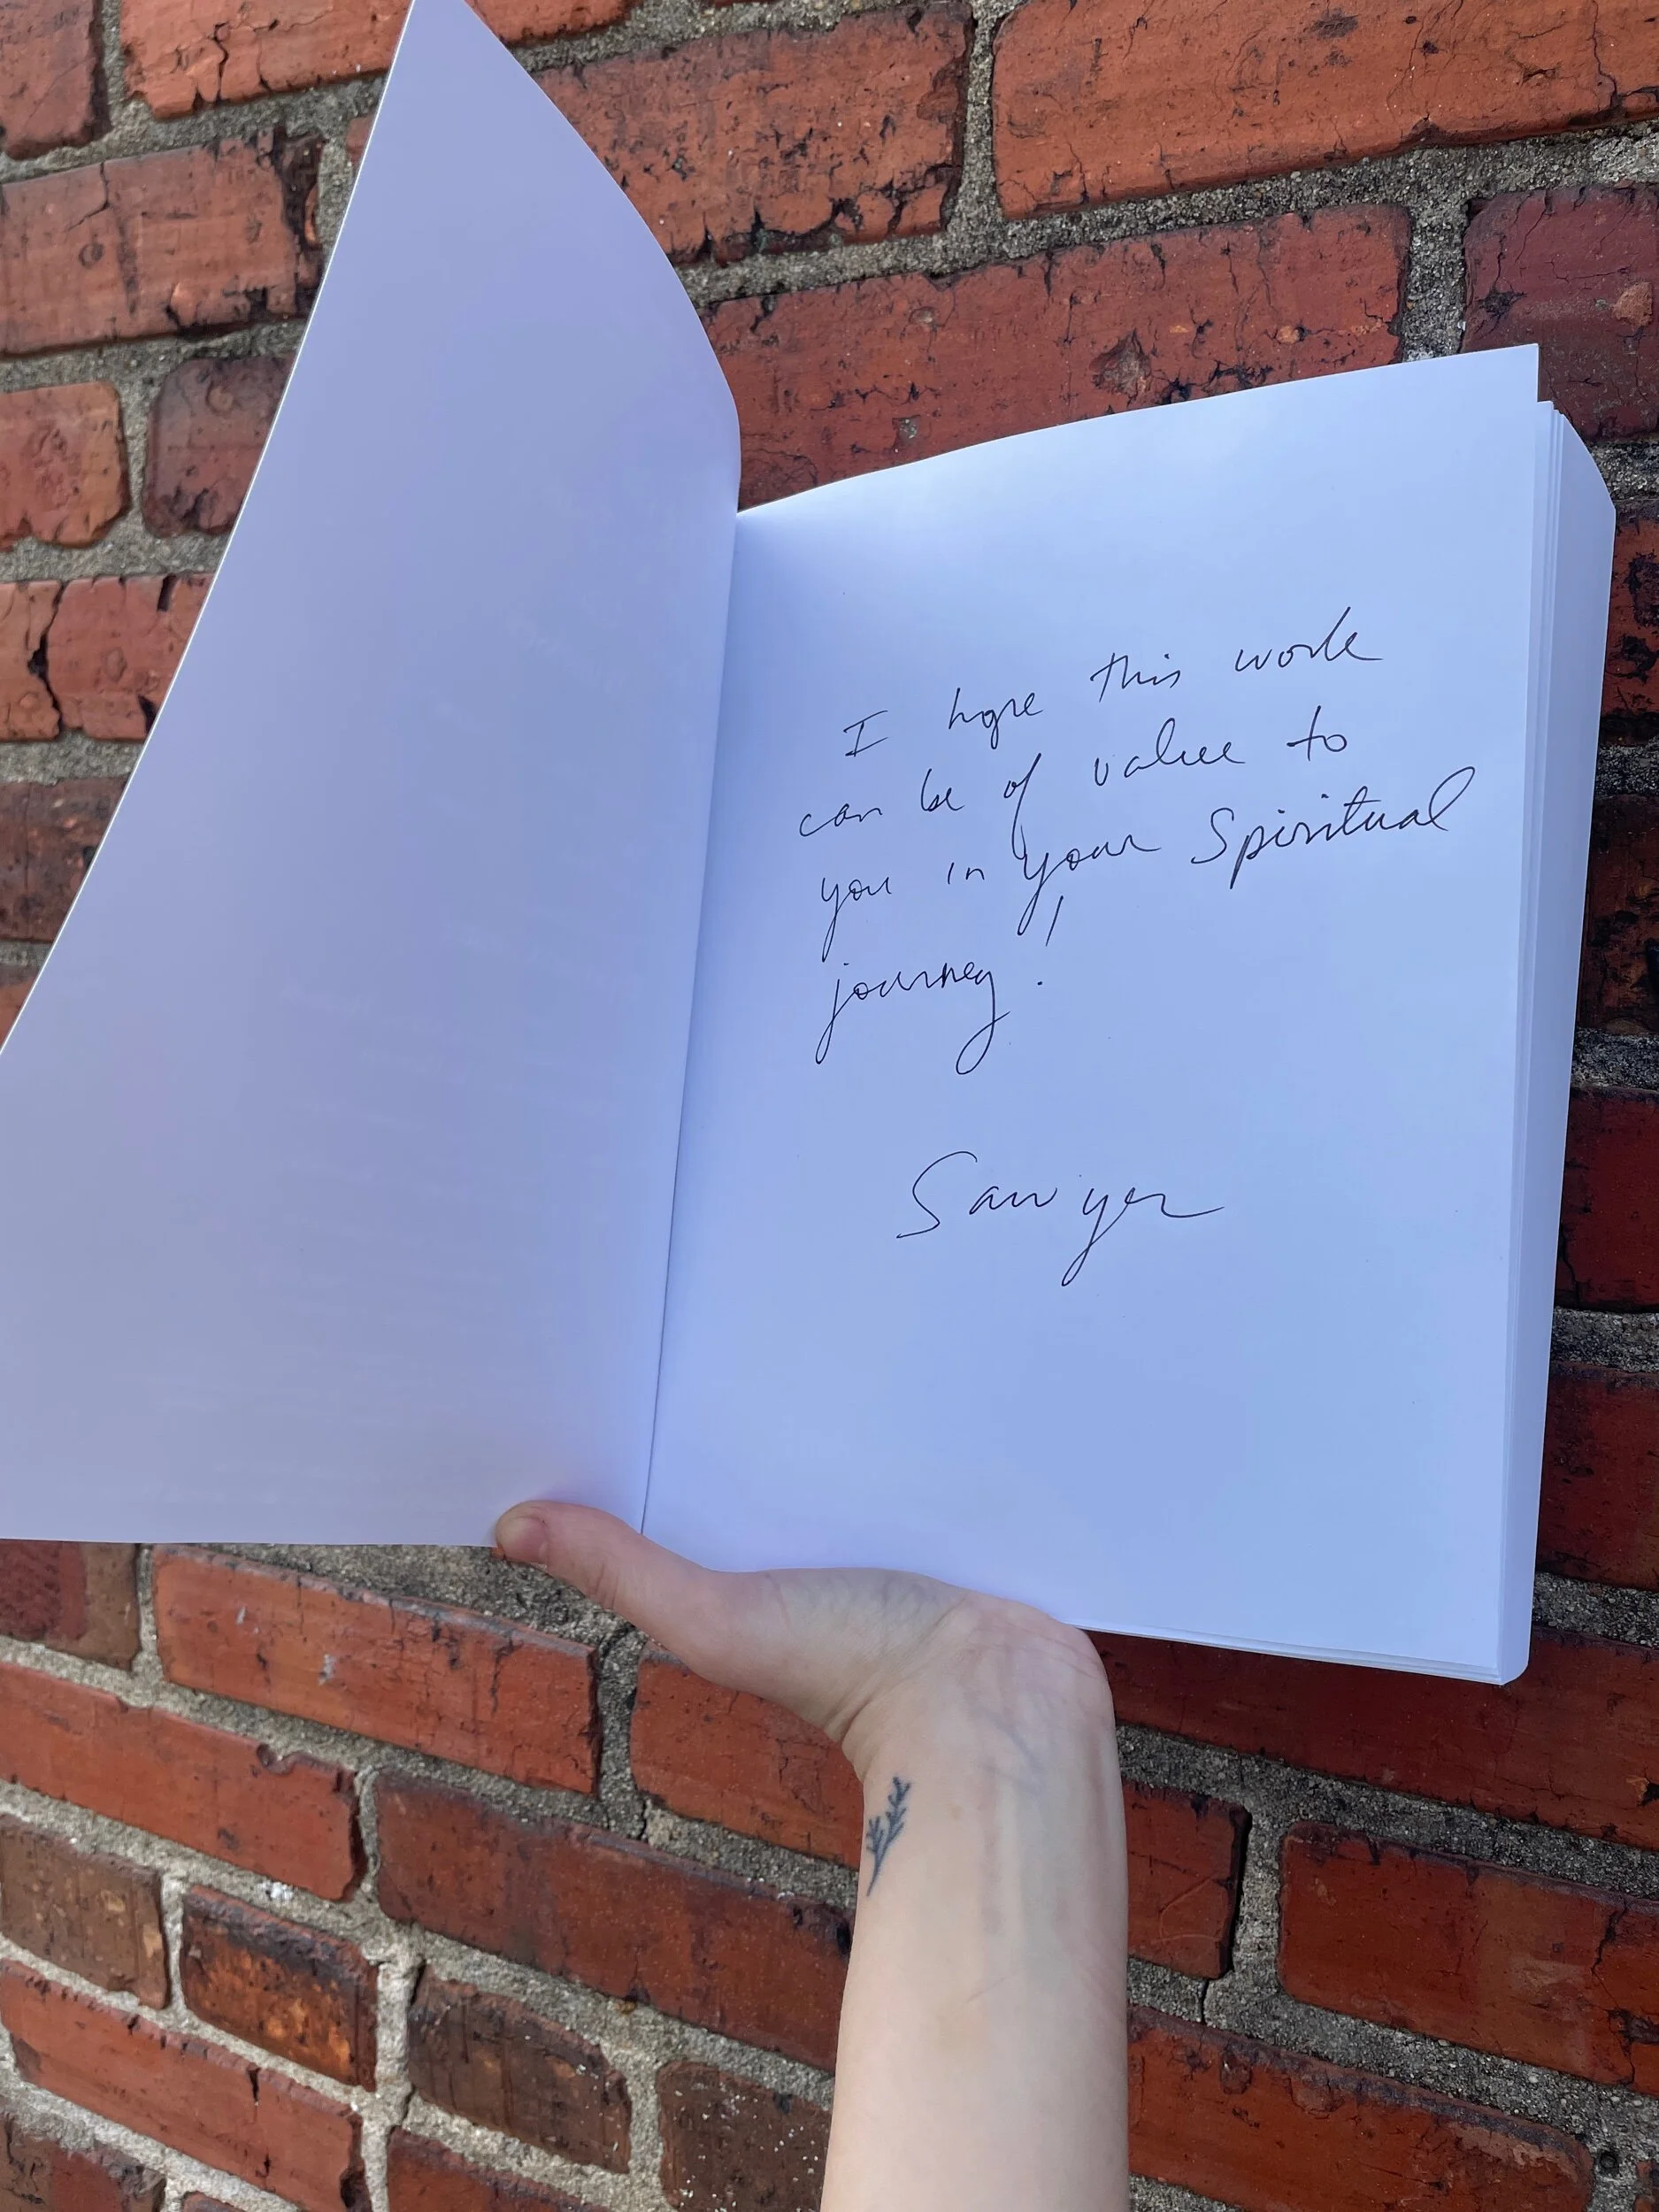 I hope this work
can be of value to
you in your Spiritual
journey!
Sawyer